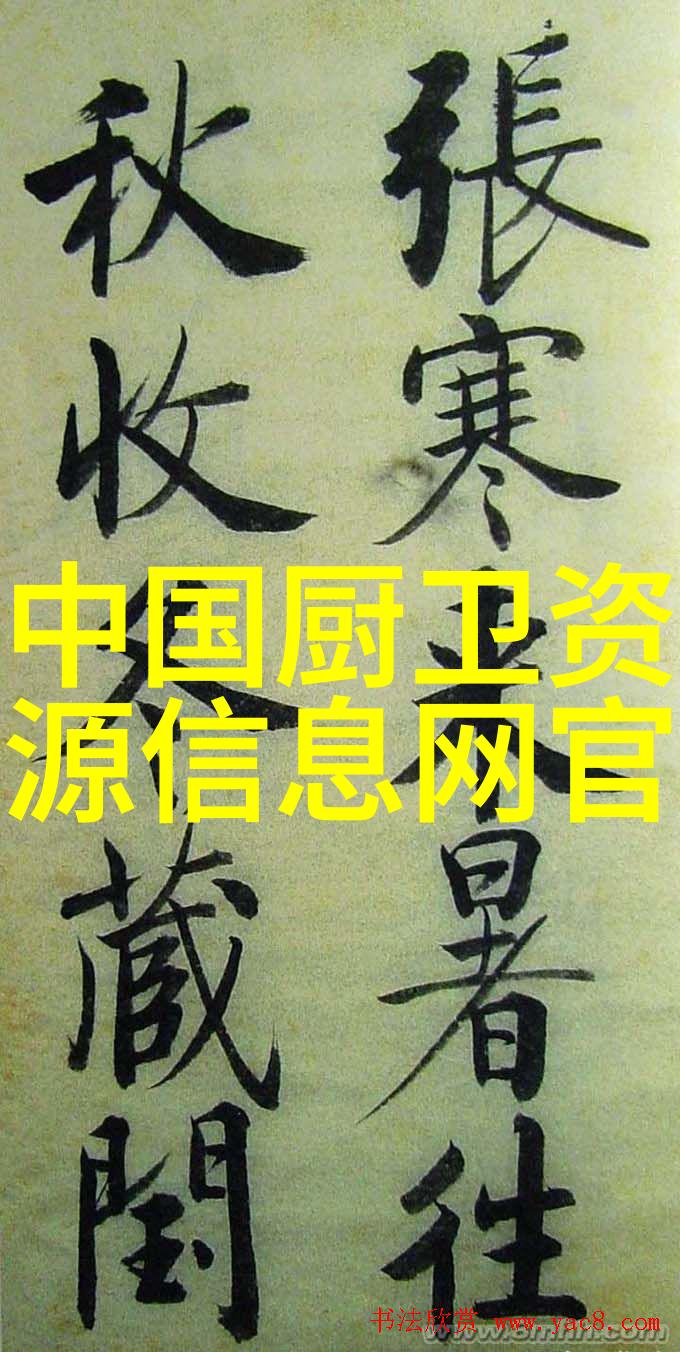 張寒来暑往
秋收冬蔵閏
中国厨卫资
源信息网官
书法欣赏 www.yac8.com